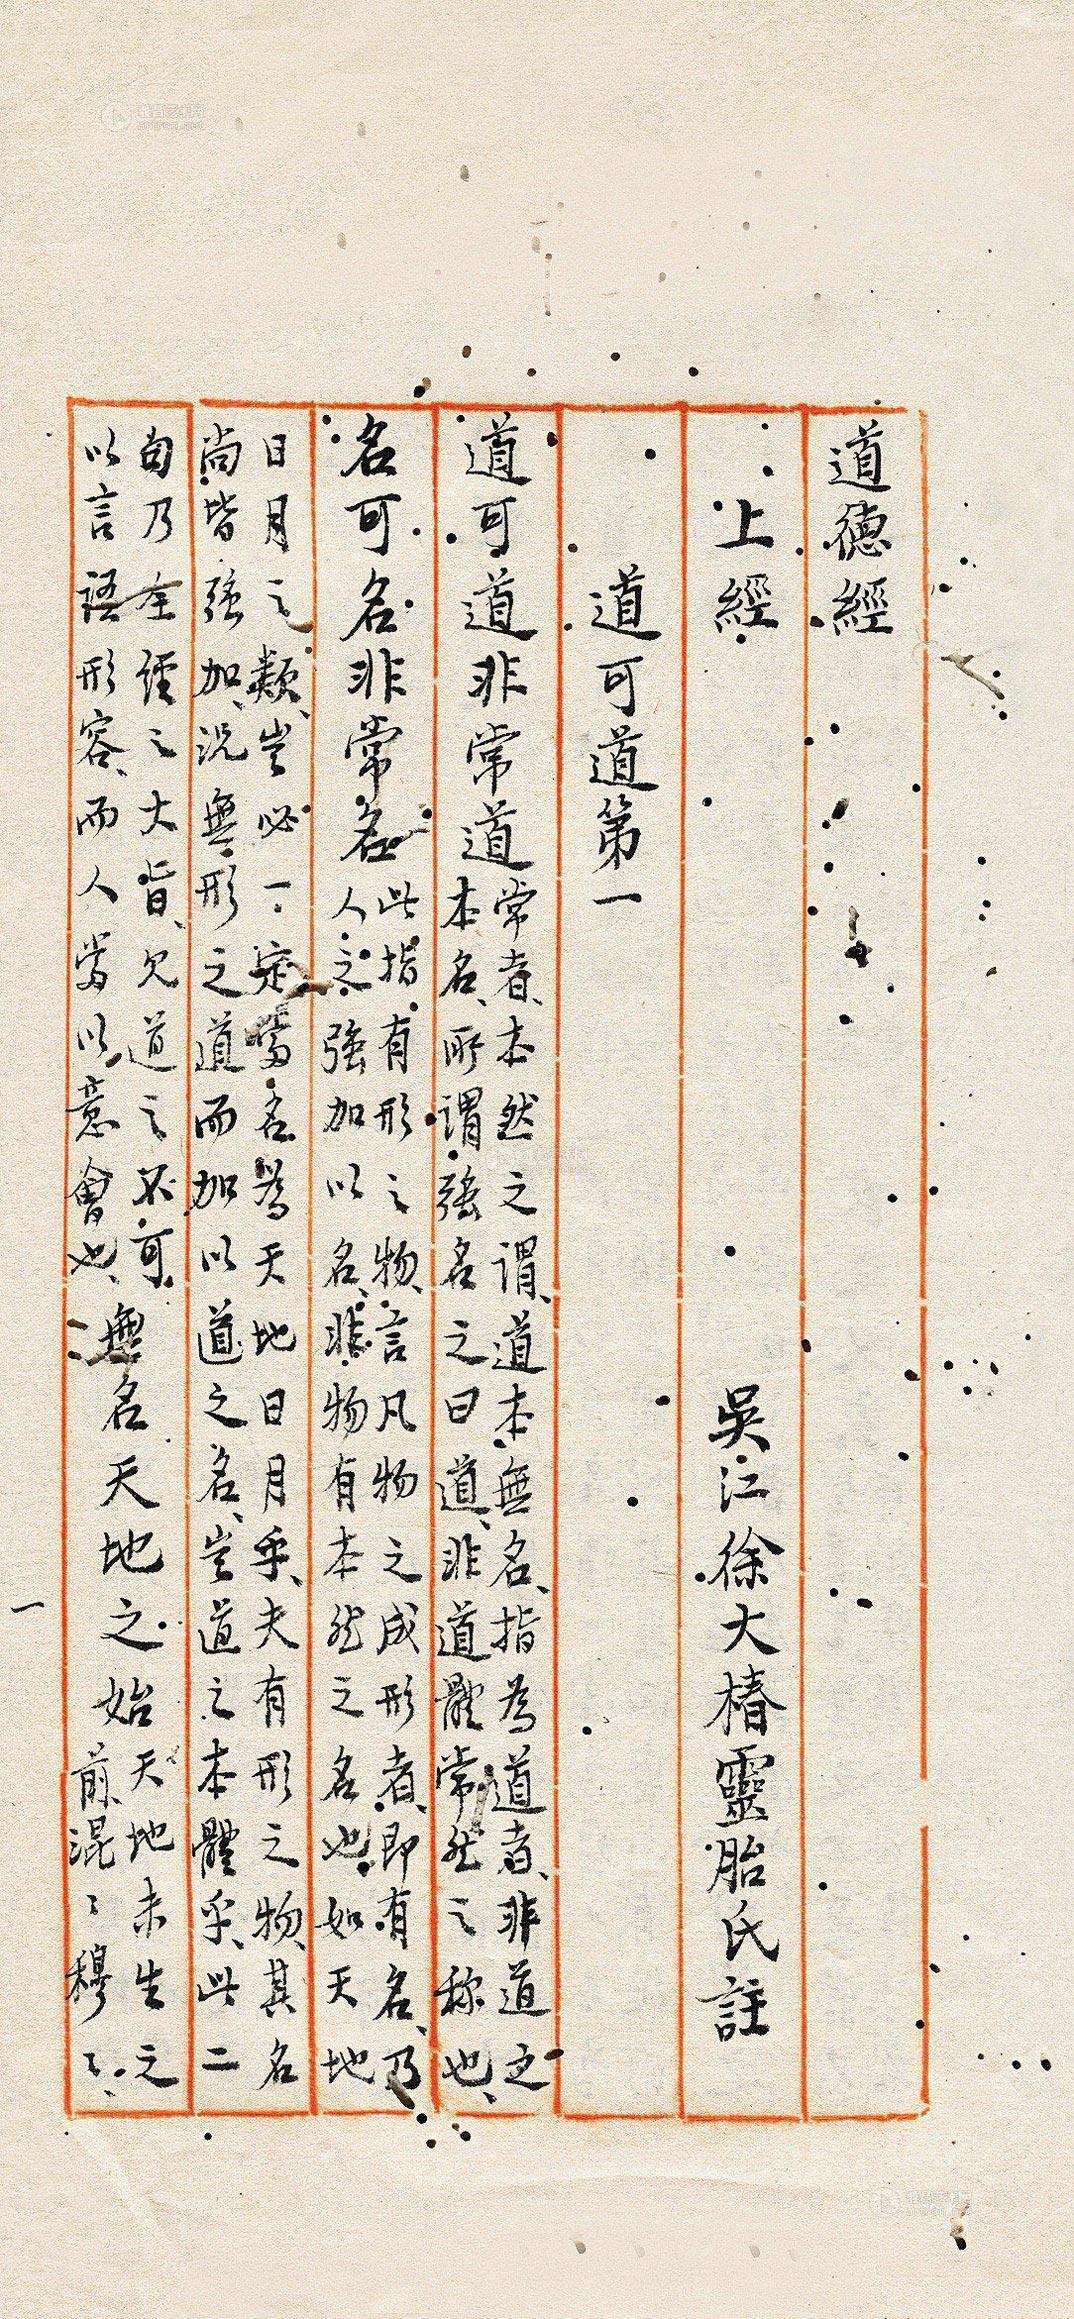 道德經
上經
吳江徐大椿靈胎氏註
道可道第一
道可道非常道
常者、本然之謂、道本無名、指為道者、非道之
本名、所謂強名之曰道、非道體常然之称也、
名可名非常名
此指有形之物、言凡物之成形者、即有名、乃
人之強加以名、非物有本然之名也、如天地
日月之類、豈必一定當名為天地日月乎、夫有形之物、其名
尚皆強加、況無形之道而加以道之名、豈道之本體乎、此二
句乃全經之大旨、見道之不可
以言語形容、而人當以意會也、
無名天地之始
天地未生之
前、混〻穆〻、
一